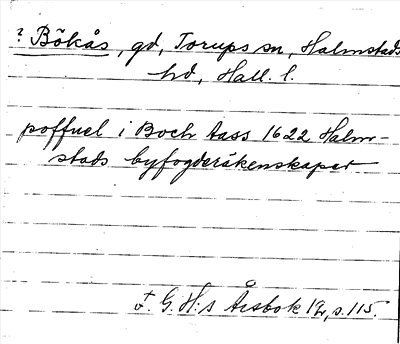 ? Bökås, gd, Torups sn, Halmstads
hd, Hall. l.
poffuel i Boch Aass 1622 Halm-
stads byfogderäkenskaper
F. G. H:s Årsbok 19, s. 115.